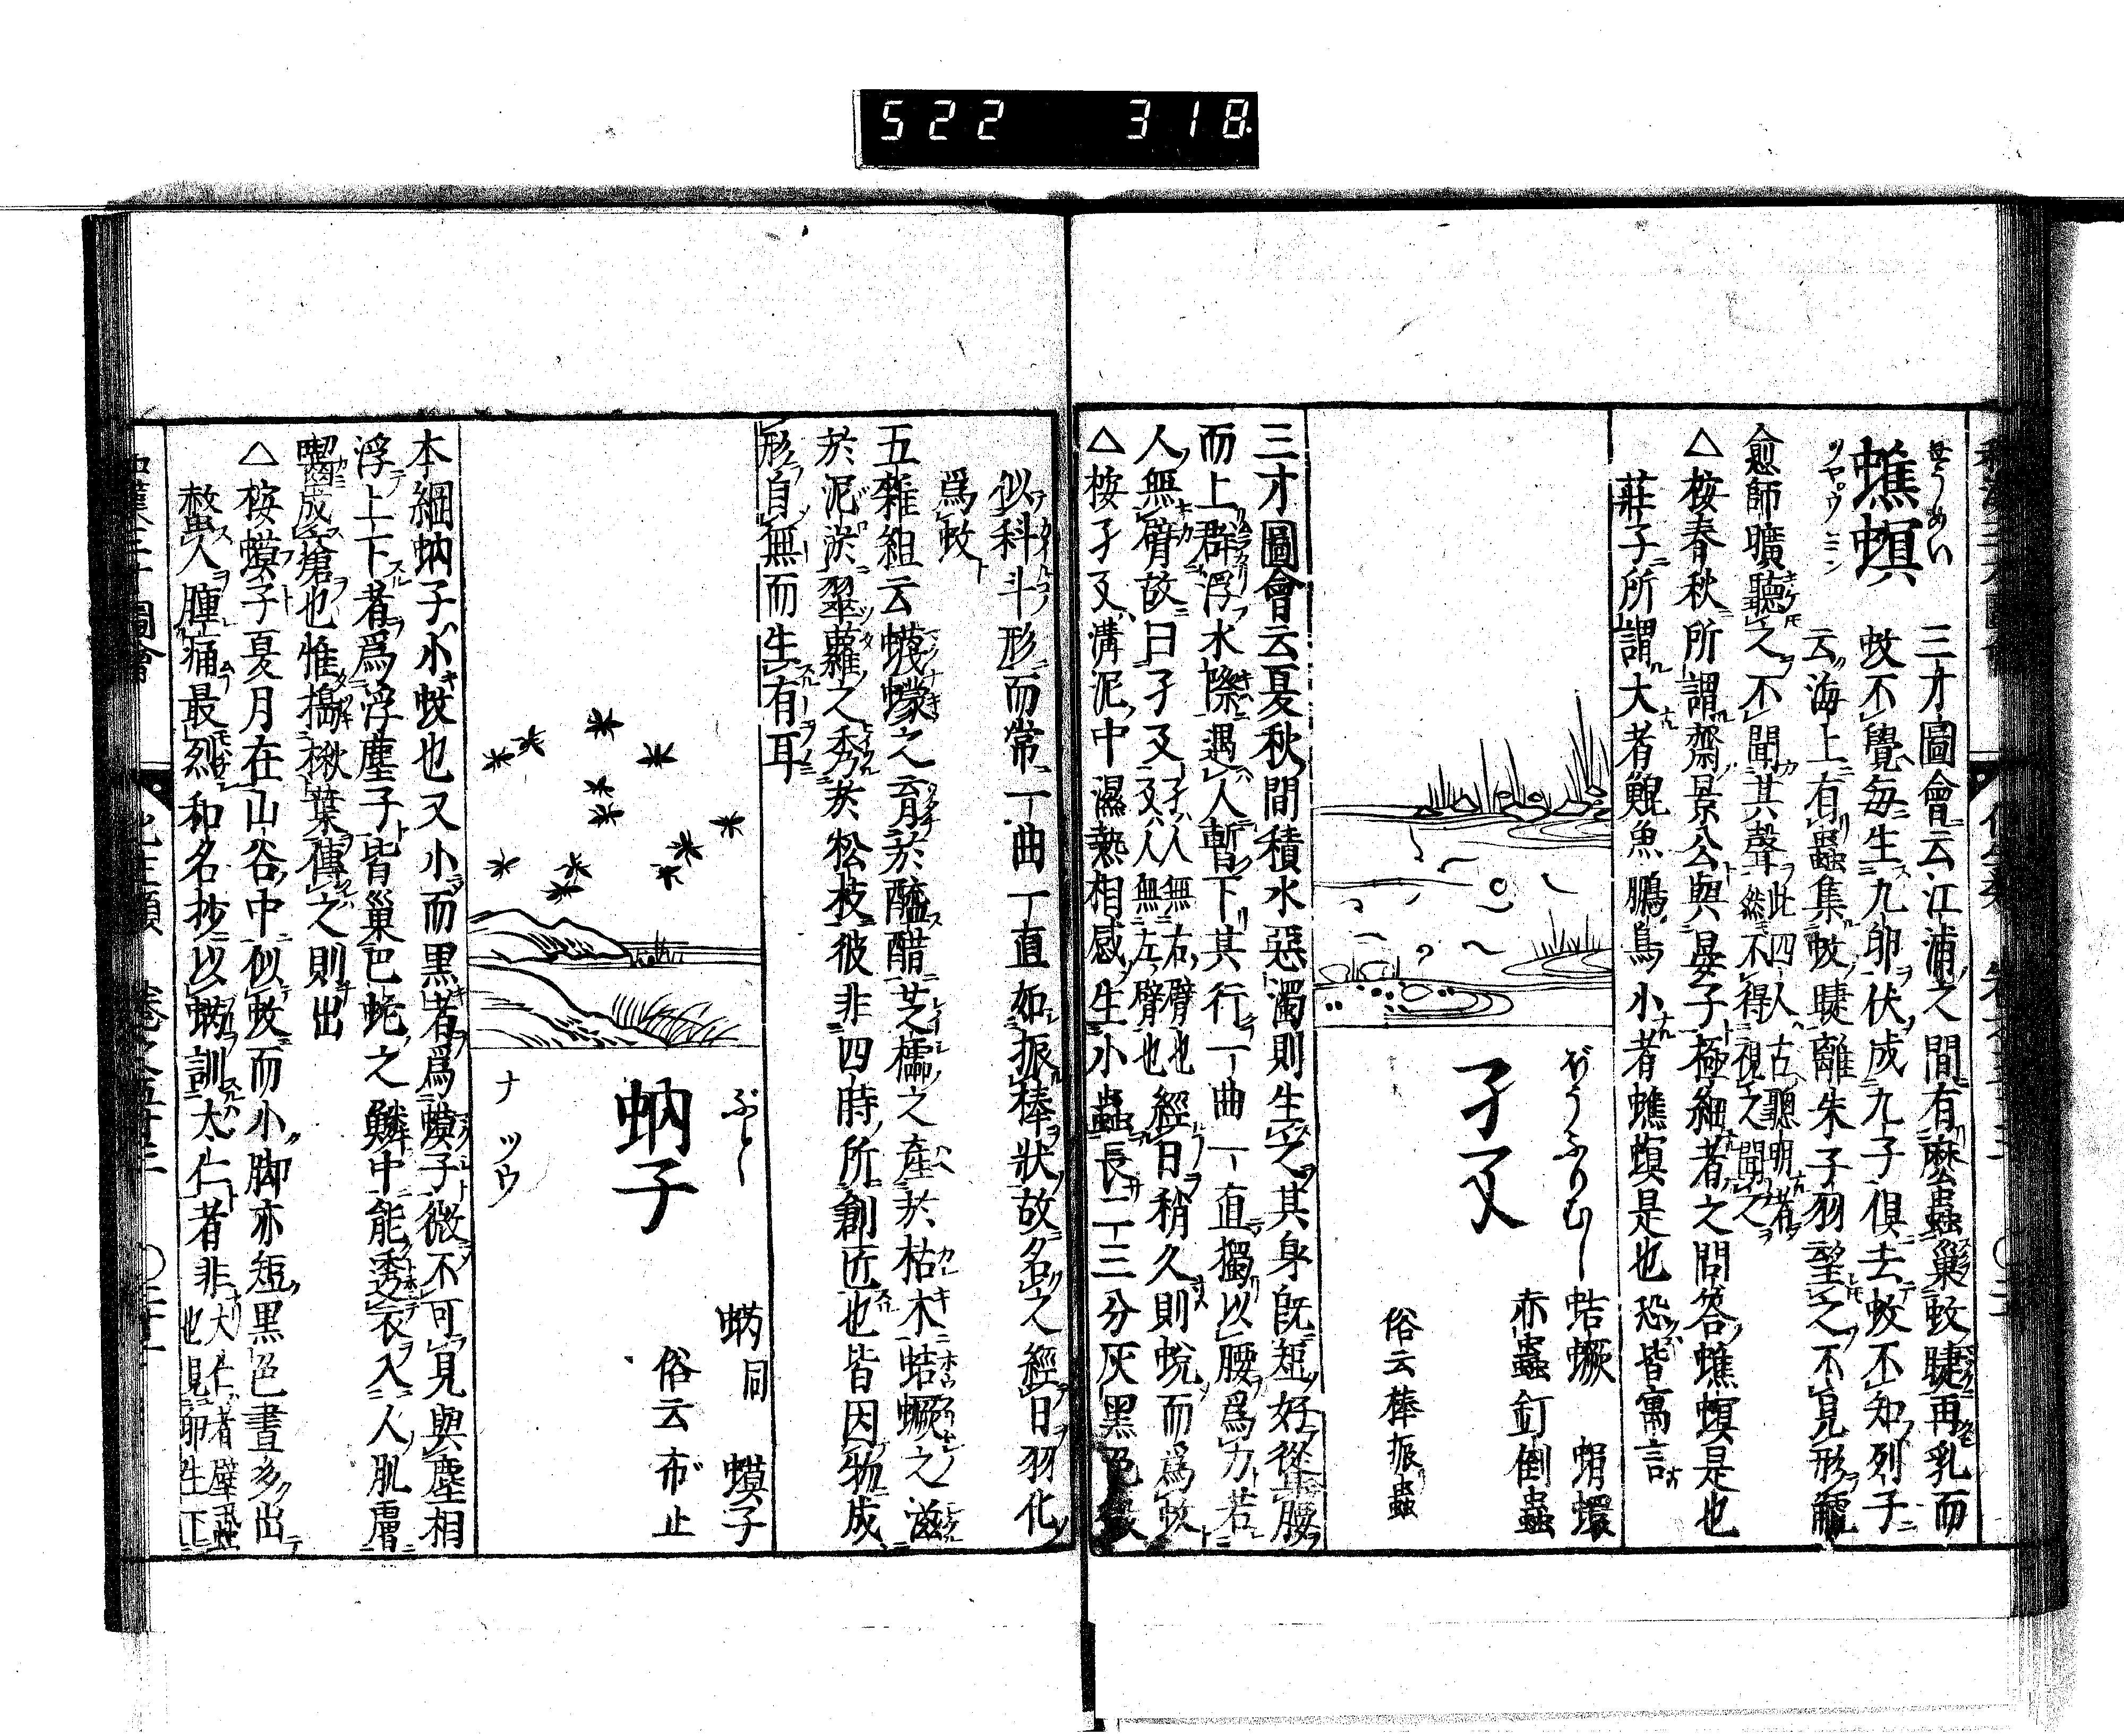 522 318
せうめい
蟭螟
ツヤ゜ウ ミン
三才圖會云江浦之間有麽蟲巢蚊睫再乳而
蚊不覺每生九卵伏成九子俱去蚊不知列子
云海上有蟲集蚊睫離朱子羽望之不見形䚦
愈師曠聽之不聞其聲此四人古聽明者然不得視之聞之
△桉春秋所謂齋景公與晏子極細者之問答蟭螟是也
莊子所謂大者鯤魚鵬鳥小者蟭螟是也恐皆寓言
ぼうふりむし
孑孓
蛣蟩 蜎蠉
赤蟲 釘倒蟲
俗云棒振蟲
三才圖會云夏秋間積水惡濁則生之其身既短好從腰
而上群浮水際遇人暫下其行一曲一直獨以腰爲力若
人無臂故曰孑孓孑人無右臂也孓人無左臂也經日稍久則蛻而爲蚊
△桉孑孓溝泥中濕熱相感生小蟲長二三分灰黑色
似科斗形而常一曲一直如振棒狀故名之經日羽化
爲蚊
五雜組云蠛蠓之育於醯醋芝檽之產於枯木蛣蟩之滋
於泥淤翠蘿之秀於松枝彼非四時所創匠也皆因物成
形自無而生有耳
ぶと
蚋子
ナ ツウ
蜹同 蟆子
俗云布止
本綱蚋子小蚊也又小而黑者爲蟆子微不可見與塵相
浮上下者爲浮塵子皆巢巴蛇之鱗中能透衣入人肌膚
囓成瘡也惟搗楸葉傳之則出
△桉蟆子夏月在山谷中似蚊而小脚亦短黑色晝多出
螫人腫痛最烈和名抄以蜹訓太仁者非也大仁者壁虱也見卵生下